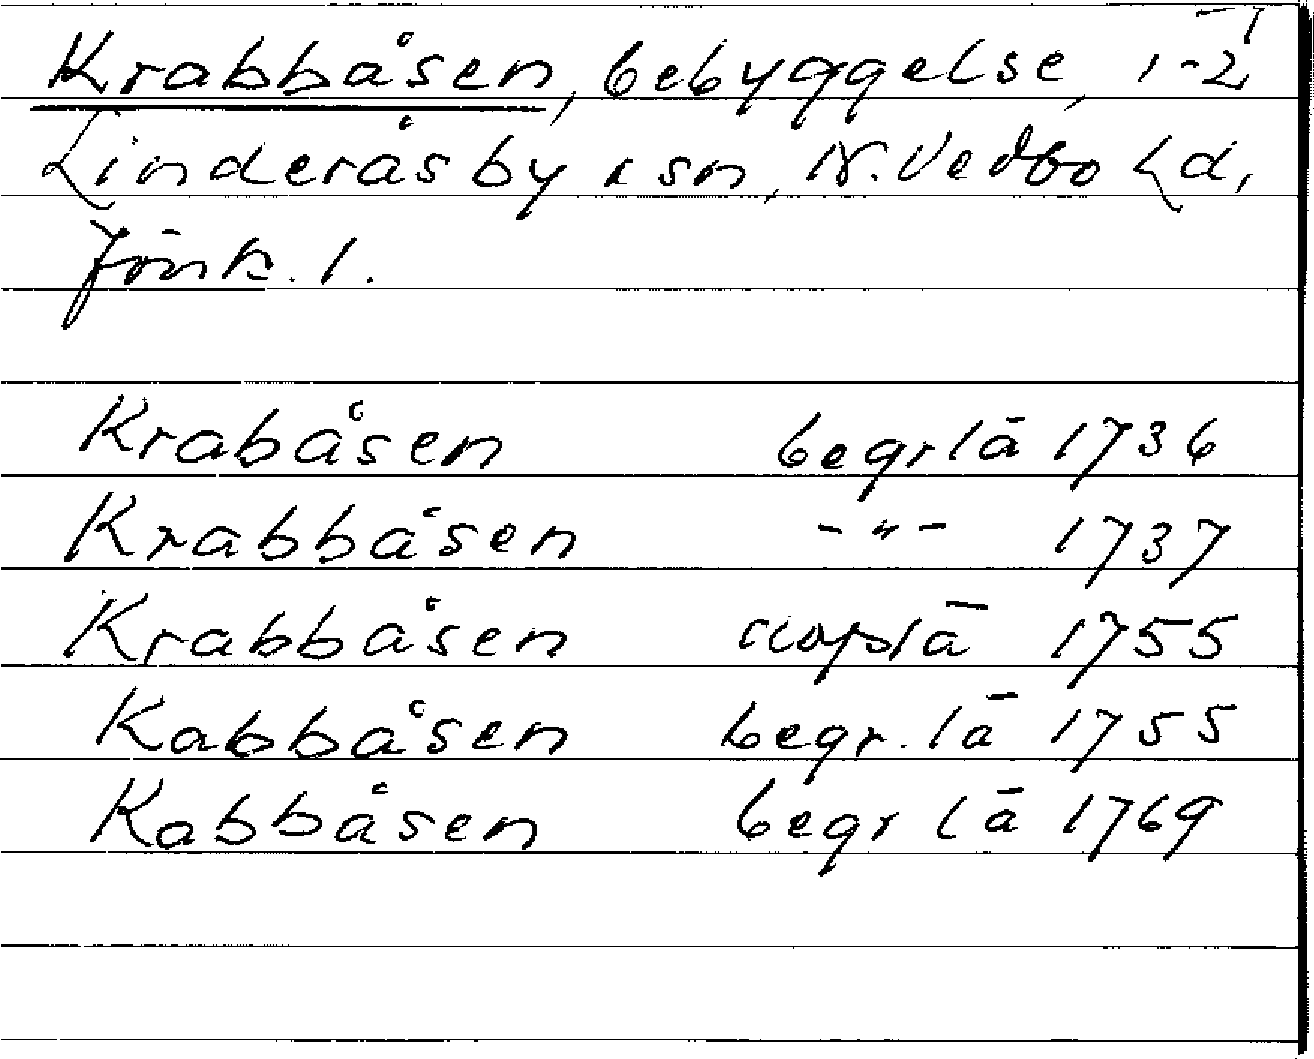 Krabbåsen, bebyggelse, i
Linderås by o sn, N. Vedbo hd,
Jönk. l.
Krabåsen begrlä 1736
Krabbåsen -"- 1737
Krabbåsen doplä 1755
Kabbåsen begr. lä 1755
Kabbåsen begr lä 1769